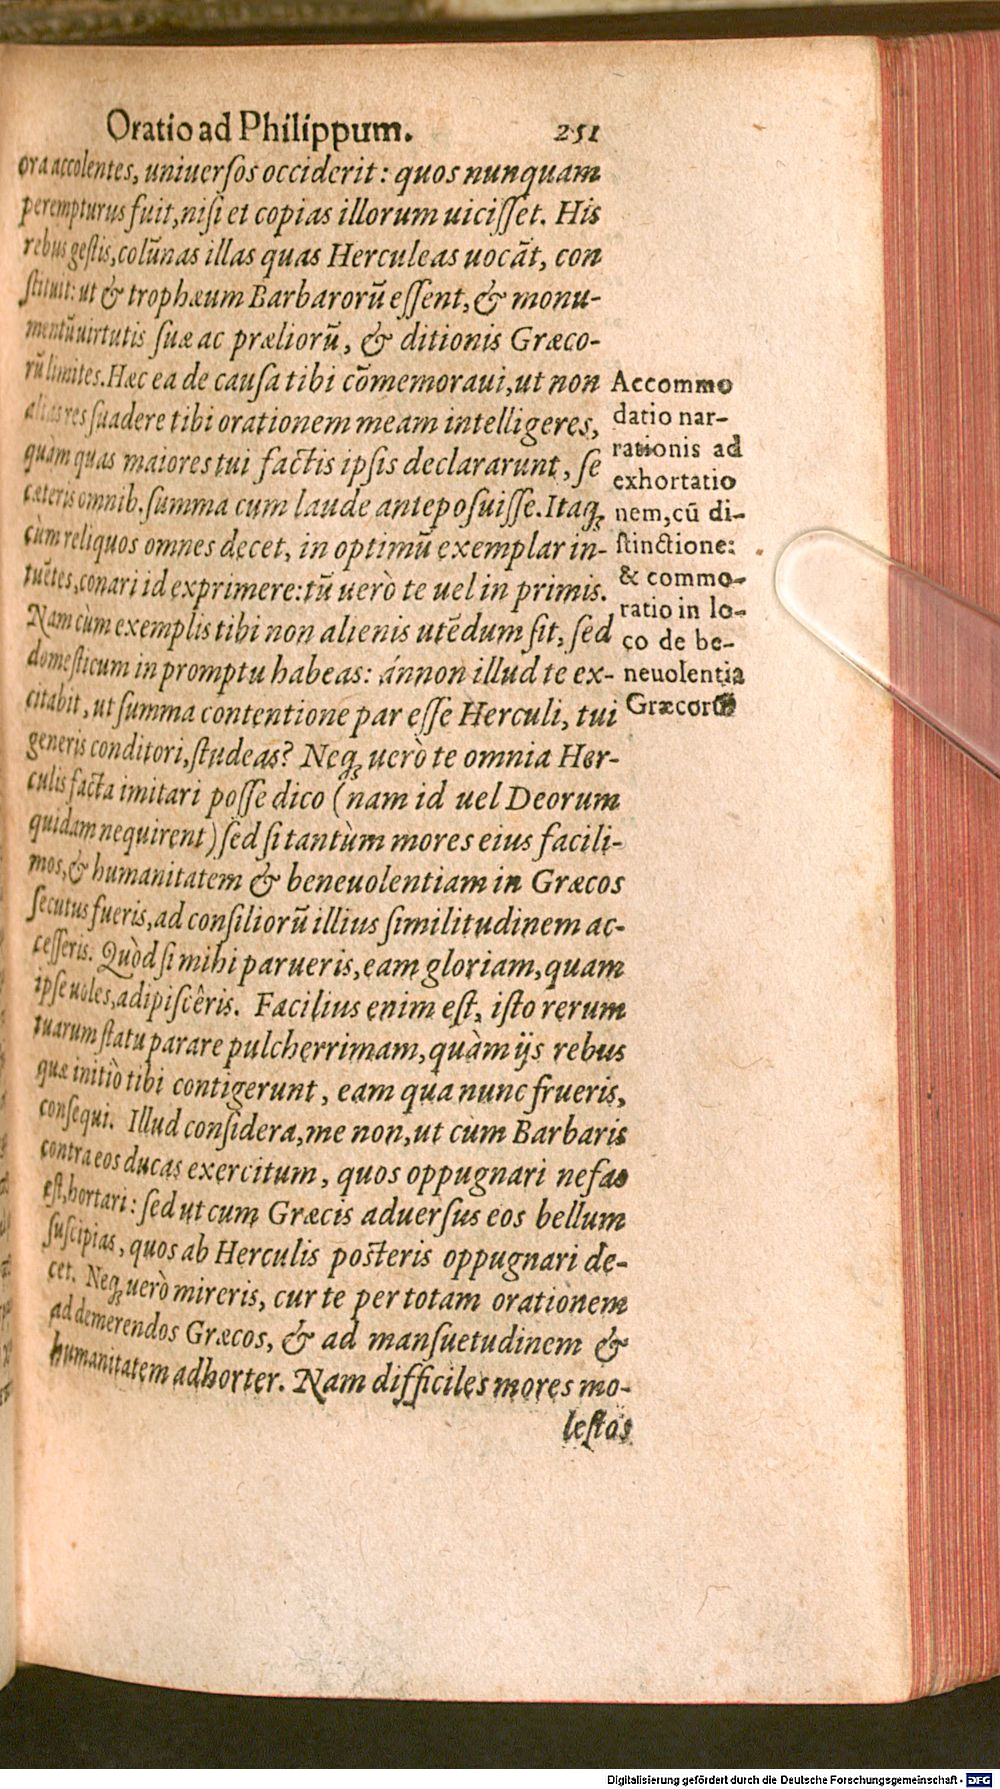 Oratio ad Philippum. 251
ora accolentes, uniuersos occiderit: quos nunquam
perempturus fuit, nisi et copias illorum uicisset. His
rebus gestis, colũnas illas quas Herculeas uocãt, con
stituit: ut & trophæum Barbarorũ essent, & monu-
mentũ uirtutis suæ ac præliorũ, & ditionis Græco-
rũ limites. Hæc ea de causa tibi cõmemoraui, ut non
alias res suadere tibi orationem meam intelligeres,
quàm quas maiores tui factis ipsis declararunt, se
cæteris omnib. summa cum laude anteposuisse. Itaq;
cùm reliquos omnes decet, in optimũ exemplar in-
tuẽtes, conari id exprimere: tũ uerò te uel in primis.
Nam cùm exemplis tibi non alienis utẽdum sit, sed
domesticum in promptu habeas: ánnon illud te ex-
citabit, ut summa contentione par esse Herculi, tui
generis conditori, studeas? Neq; uerò te omnia Her-
culis facta imitari posse dico (nam id uel Deorum
quidam nequirent) sed si tantùm mores eius facili-
mos, & humanitatem & beneuolentiam in Græcos
secutus fueris, ad consiliorũ illius similitudinem ac-
cesseris. Quòd si mihi parueris, eam gloriam, quam
ipse uoles, adipiscêris. Facilius enim est, isto rerum
tuarum statu parare pulcherrimam, quàm ijs rebus
quæ initiò tibi contigerunt, eam qua nunc frueris,
consequi. Illud considera, me non, ut cùm Barbaris
contra eos ducas exercitum, quos oppugnari nefas
est, hortari: sed ut cum Græcis aduersus eos bellum
suscipias, quos ab Herculis posteris oppugnari de-
cet. Neq; uerò mireris, cur te per totam orationem
ad demerendos Græcos, & ad mansuetudinem &
humanitatem adhorter. Nam difficiles mores mo-
lestos
Accommo
datio nar-
rationis ad
exhortatio
nem, cũ di-
stinctione:
& commo-
ratio in lo-
co de be-
neuolentia
Græcorũ
Digitalisierung gefördert durch die Deutsche Forschungsgemeinschaft - DFG